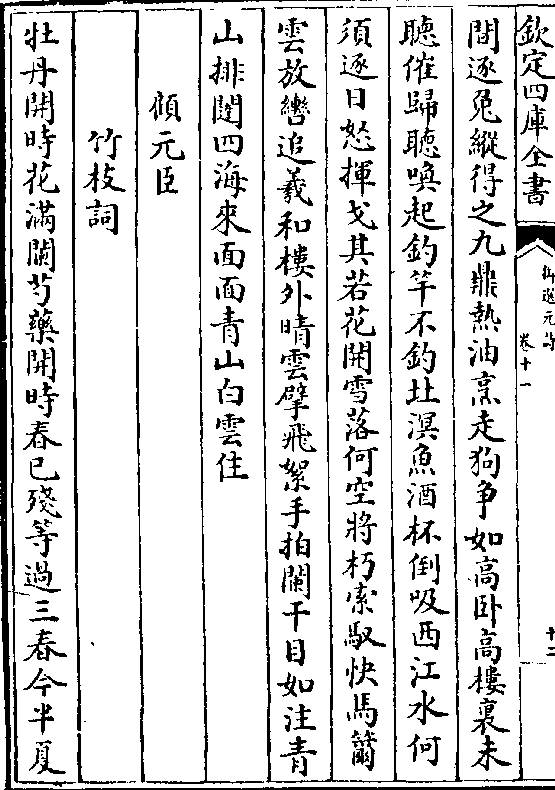 欽定四庫全書
御選元詩
卷十一
十二
間逐兔縱得之九鼎熱油烹走狗争如高卧高樓裏未
聽催歸聽喚起釣竿不釣北溟魚酒杯倒吸西江水何
須逐日怒揮戈其若花開雪落何空將朽索馭快馬籋
雲放轡追羲和樓外晴雲擘飛絮手拍闌干目如注青
山排闥四海來面面青山白雲住
傾元臣
竹枝詞
牡丹開時花滿闌芍藥開時春已殘等過三春今半夏